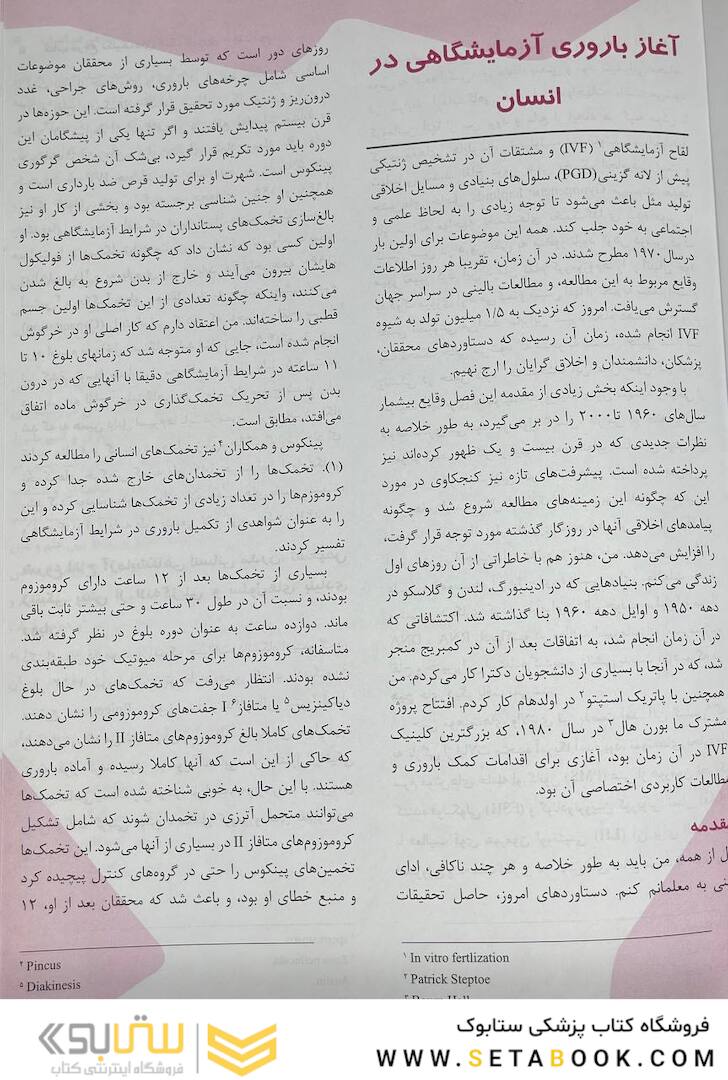 آغاز باروری آزمایشگاهی در
انسان
لقاح آزمایشگاهی۱ (IVF) و مشتقات آن در تشخیص ژنتیکی
پیش از لانه گزینی(PGD)، سلول‌های بنیادی و مسایل اخلاقی
تولید مثل باعث می‌شود تا توجه زیادی را به لحاظ علمی و
اجتماعی به خود جلب کند. همه این موضوعات برای اولین بار
درسال ۱۹۷۰ مطرح شدند. در آن زمان، تقریبا هر روز اطلاعات
وقایع مربوط به این مطالعه، و مطالعات بالینی در سراسر جهان
گسترش می‌یافت. امروز که نزدیک به ۱/۵ میلیون تولد به شیوه
IVF انجام شده، زمان آن رسیده که دستاوردهای محققان،
پزشکان، دانشمندان و اخلاق گرایان را ارج نهیم.
با وجود اینکه بخش زیادی از مقدمه این فصل وقایع بیشمار
سال‌های ۱۹۶۰ تا۲۰۰۰ را در بر می‌گیرد، به طور خلاصه به
نظرات جدیدی که در قرن بیست و یک ظهور کرده‌اند نیز
پرداخته شده است. پیشرفت‌های تازه نیز کنجکاوی در مورد
این که چگونه این زمینه‌های مطالعه شروع شد و چگونه
پیامدهای اخلاقی آنها در روزگار گذشته مورد توجه قرار گرفت،
را افزایش می‌دهد. من، هنوز هم با خاطراتی از آن روزهای اول
زندگی می‌کنم. بنیادهایی که در ادینبورگ، لندن و گلاسکو در
دهه ۱۹۵۰ و اوایل دهه ۱۹۶۰ بنا گذاشته شد. اکتشافاتی که
در آن زمان انجام شد، به اتفاقات بعد از آن در کمبریج منجر
شد، که در آنجا با بسیاری از دانشجویان دکترا کار می‌کردم. من
همچنین با پاتریک استپتو۲ در اولدهام کار کردم. افتتاح پروژه
مشترک ما بورن هال۳ در سال ۱۹۸۰، که بزرگترین کلینیک
IVF در آن زمان بود، آغازی برای اقدامات کمک باروری و
مطالعات کاربردی اختصاصی آن بود.
قدمه
ل از همه، من باید به طور خلاصه و هر چند ناکافی، ادای
نی به معلمانم کنم. دستاوردهای امروز، حاصل تحقیقات
۱ In vitro fertlization
۲ Patrick Steptoe
روزهای دور است که توسط بسیاری از محققان موضوعات
اساسی شامل چرخه‌های باروری، روش‌های جراحی، غدد
درون‌ریز و ژنتیک مورد تحقیق قرار گرفته است. این حوزه‌ها در
قرن بیستم پیدایش یافتند و اگر تنها یکی از پیشگامان این
دوره باید مورد تکریم قرار گیرد، بی‌شک آن شخص گرگوری
پینکوس است. شهرت او برای تولید قرص ضد بارداری است و
همچنین او جنین شناسی برجسته بود و بخشی از کار او نیز
بالغ‌سازی تخمک‌های پستانداران در شرایط آزمایشگاهی بود. او
اولین کسی بود که نشان داد که چگونه تخمک‌ها از فولیکول
هایشان بیرون می‌آیند و خارج از بدن شروع به بالغ شدن
می‌کنند، واینکه چگونه تعدادی از این تخمک‌ها اولین جسم
قطبی را ساخته‌اند. من اعتقاد دارم که کار اصلی او در خرگوش
انجام شده است، جایی که او متوجه شد که زمانهای بلوغ ۱۰ تا
۱۱ ساعته در شرایط آزمایشگاهی دقیقا با آنهایی که در درون
بدن پس از تحریک تخمک‌گذاری در خرگوش ماده اتفاق
می‌افتد، مطابق است.
پینکوس و همکاران۴ نیز تخمک‌های انسانی را مطالعه کردند
(۱). تخمک‌ها را از تخمدان‌های خارج شده جدا کرده و
کروموزم‌ها را در تعداد زیادی از تخمک‌ها شناسایی کرده و این
را به عنوان شواهدی از تکمیل باروری در شرایط آزمایشگاهی
تفسیر کردند.
بسیاری از تخمک‌ها بعد از ۱۲ ساعت دارای کروموزوم
بودند، و نسبت آن در طول ۳۰ ساعت و حتی بیشتر ثابت باقی
ماند. دوازده ساعت به عنوان دوره بلوغ در نظر گرفته شد.
متاسفانه، کروموزوم‌ها برای مرحله میوتیک خود طبقه‌بندی
نشده بودند. انتظار می‌رفت که تخمک‌های در حال بلوغ
دیاکینزیس۵ یا متافاز۶ I جفت‌های کروموزومی را نشان دهند.
تخمک‌های کاملا بالغ کروموزوم‌های متافاز II را نشان می‌دهند،
که حاکی از این است که آنها کاملا رسیده و آماده باروری
هستند. با این حال، به خوبی شناخته شده است که تخمک‌ها
می‌توانند متحمل آترزی در تخمدان شوند که شامل تشکیل
کروموزوم‌های متافاز II در بسیاری از آنها می‌شود. این تخمک‌ها
تخمین‌های پینکوس را حتی در گروه‌های کنترل پیچیده کرد
و منبع خطای او بود، و باعث شد که محققان بعد از او، ۱۲
۴ Pincus
۵ Diakinesis
فروشگاه کتاب پزشکی ستابوک
WWW.SETABOOK.COM
ستابوک
فروشگاه اینترنتی کتاب